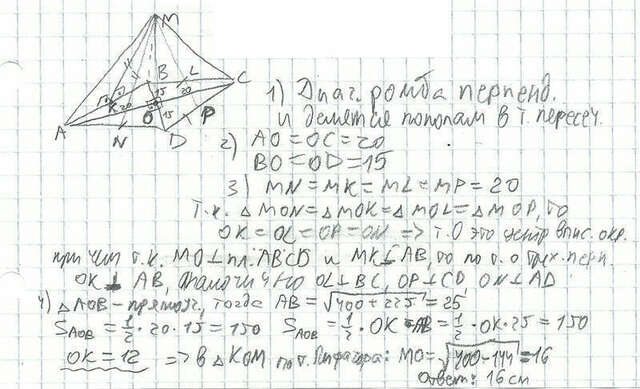 M
B
L
C
K
20
15
20
O
15
P
A
N
D
1) Диаг. ромба перпенд.
и делятся пополам в т. пересеч.
2) AO = OC = 20
BO = OD = 15
3) MN = MK = ML = MP = 20
Т.к. △MON = △MOK = △MOL = △MOP, то
OK = OL = OP = ON => т.О это центр впис. окр.
при чем т.к. MO⊥пл.ABCD и MK⊥AB, то по т. о трех пери.
OK ⊥ AB, аналогично OL⊥BC, OP⊥CD, ON⊥AD
4) △AOB - прямоуг, тогда AB = √400+225 = 25
S_AOB = 1/2 · 20 · 15 = 150 S_AOB = 1/2 · OK · AB = 1/2 · OK · 25 = 150
OK = 12 => в △KOM по т. Пифагора: MO = √400-144 = 16
Ответ: 16 см